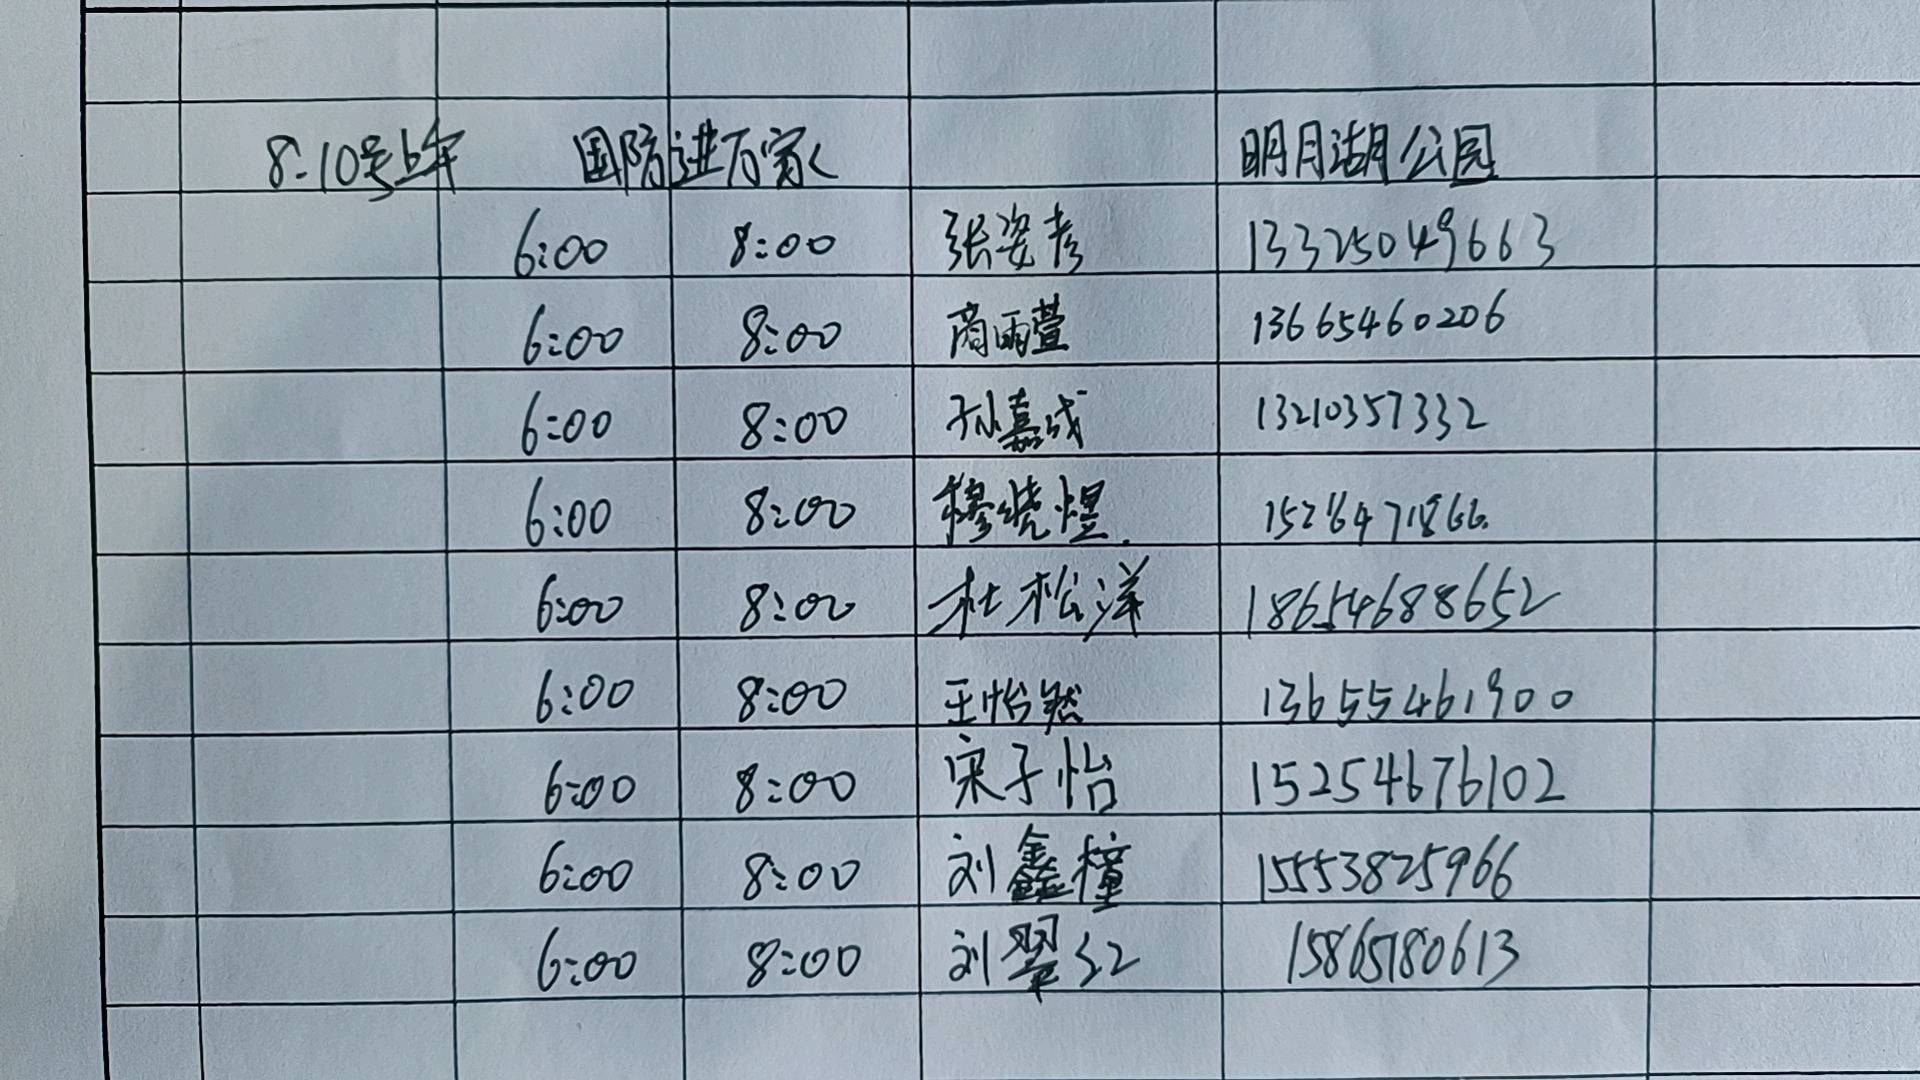 8.10号上午 国防进万家 明月湖公园
6:00 8:00 张姿彦 13325049663
6:00 8:00 商雨萱 13665460206
6:00 8:00 孙嘉成 13210357332
6:00 8:00 穆晓煜
6:00 8:00 杜松洋 18654688652
6:00 8:00 王怡然 13655461900
6:00 8:00 宋子怡 15254676102
6:00 8:00 刘鑫橦 15553825966
6:00 8:00 刘翠红 15865780613